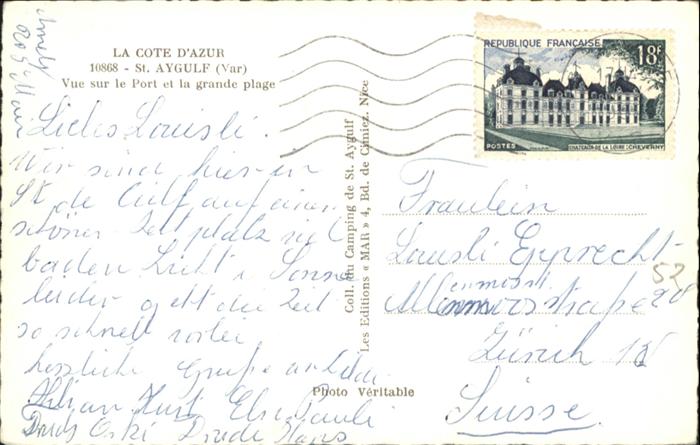 LA COTE D'AZUR
10868 - St. AYGULF (Var)
Vue sur le Port et la grande plage
Liebes Lousli.
Wir sind hier in
St de auf einem
schönen Zeltplatz viel
baden Licht Sonne
leider geht die Zeit
so schnell vorbei
herzliche Grüsse an
Lilian Kurt Elsi Pauli
Oski Trude Hans
Coll. du Camping de St. Aygulf
Les Editions « MAR » 4, Bd. de Cimiez, Nice
Photo Véritable
REPUBLIQUE FRANÇAISE 18F
POSTES CHATEAUX DE LA LOIRE : CHEVERNY
Fraulein
Lousli Epprecht
52
Zürich
Suisse